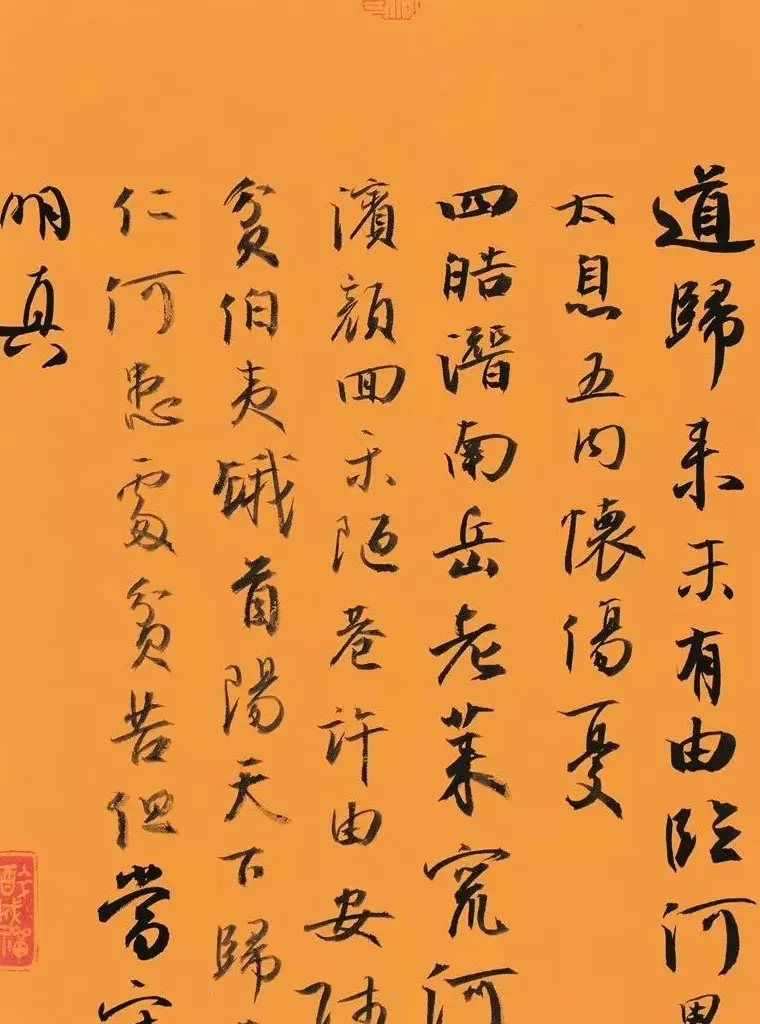 道歸來未有由臨河
太息五內懷傷憂
四皓潛南岳老萊竄河
濱顏回樂陋巷許由安
貧伯夷餓首陽天下歸
仁何患處貧苦但當
明真